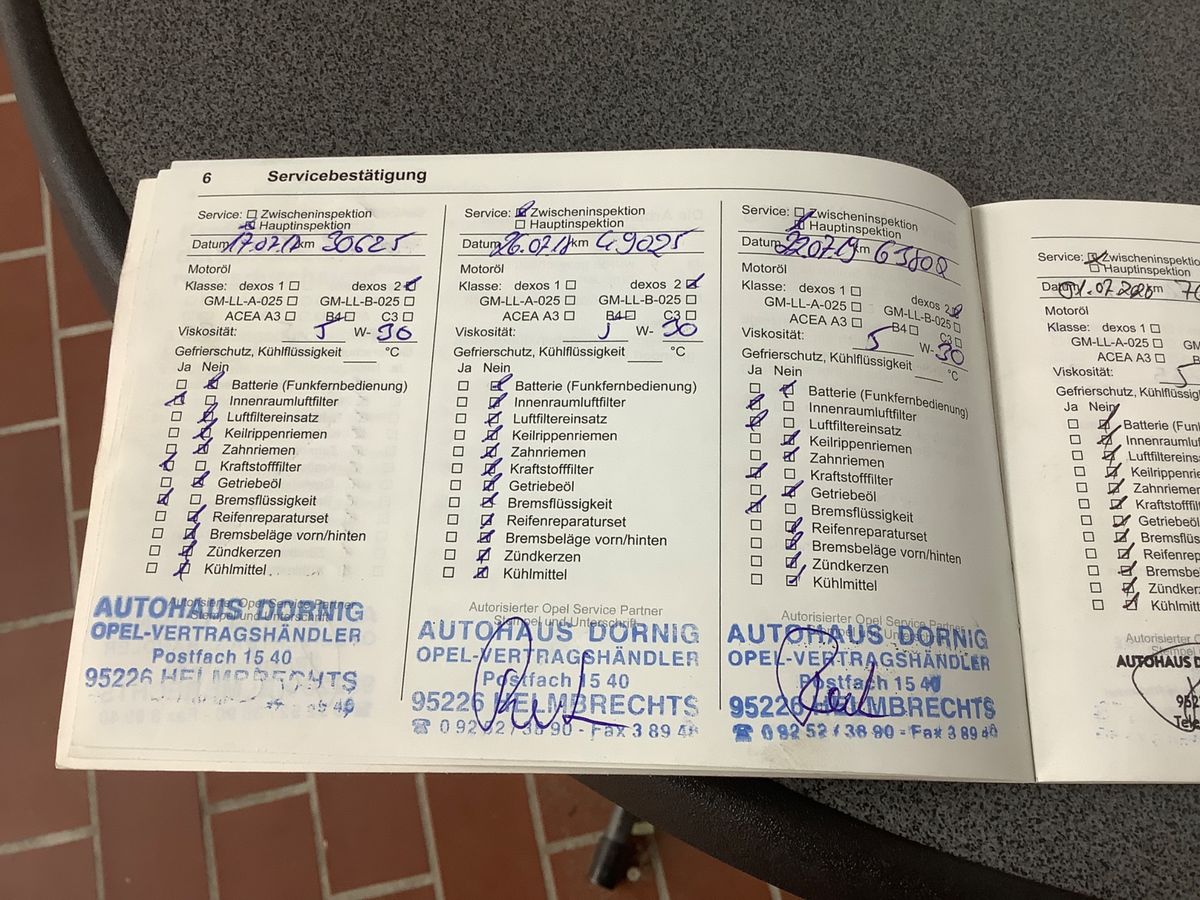 6 Servicebestätigung
Service: Zwischeninspektion
Hauptinspektion
Datum 17.07.17 km 30625
Motoröl
Klasse: dexos 1 dexos 2
GM-LL-A-025 GM-LL-B-025
ACEA A3 B4 C3
Viskosität: 5 W- 30
Gefrierschutz, Kühlflüssigkeit °C
Ja Nein
Batterie (Funkfernbedienung)
Innenraumluftfilter
Luftfiltereinsatz
Keilrippenriemen
Zahnriemen
Kraftstofffilter
Getriebeöl
Bremsflüssigkeit
Reifenreparaturset
Bremsbeläge vorn/hinten
Zündkerzen
Kühlmittel
Autorisierter Opel Service Partner
Stempel und Unterschrift
AUTOHAUS DORNIG
OPEL-VERTRAGSHÄNDLER
Postfach 15 40
95226 HELMBRECHTS
Service: Zwischeninspektion
Hauptinspektion
Datum 26.07.18 km 49025
Motoröl
Klasse: dexos 1 dexos 2
GM-LL-A-025 GM-LL-B-025
ACEA A3 B4 C3
Viskosität: 5 W- 30
Gefrierschutz, Kühlflüssigkeit °C
Ja Nein
Batterie (Funkfernbedienung)
Innenraumluftfilter
Luftfiltereinsatz
Keilrippenriemen
Zahnriemen
Kraftstofffilter
Getriebeöl
Bremsflüssigkeit
Reifenreparaturset
Bremsbeläge vorn/hinten
Zündkerzen
Kühlmittel
Autorisierter Opel Service Partner
Stempel und Unterschrift
AUTOHAUS DORNIG
OPEL-VERTRAGSHÄNDLER
Postfach 15 40
95226 HELMBRECHTS
☎ 0 92 52 / 38 90 - Fax 3 89 40
Service: Zwischeninspektion
Hauptinspektion
Datum 22.07.19 km 63802
Motoröl
Klasse: dexos 1 dexos 2
GM-LL-A-025 GM-LL-B-025
ACEA A3 B4 C3
Viskosität: 5 W- 30
Gefrierschutz, Kühlflüssigkeit °C
Ja Nein
Batterie (Funkfernbedienung)
Innenraumluftfilter
Luftfiltereinsatz
Keilrippenriemen
Zahnriemen
Kraftstofffilter
Getriebeöl
Bremsflüssigkeit
Reifenreparaturset
Bremsbeläge vorn/hinten
Zündkerzen
Kühlmittel
Autorisierter Opel Service Partner
Stempel und Unterschrift
AUTOHAUS DORNIG
OPEL-VERTRAGSHÄNDLER
Postfach 15 40
95226 HELMBRECHTS
☎ 0 92 52 / 38 90 - Fax 3 89 40
Service: Zwischeninspektio
Hauptinspektion
Datum km
Motoröl
Klasse: dexos 1
GM-LL-A-025 GM
ACEA A3
Viskosität: 5
Gefrierschutz, Kühlflüssigke
Ja Nein
Batterie (Funk
Innenraumluft
Luftfiltereins
Keilrippenrie
Zahnriemen
Kraftstofffilt
Getriebeöl
Bremsflüs
Reifenrep
Bremsbe
Zündker
Kühlmitt
Autorisierte
Stempel
AUTOHAUS D
952
Tele